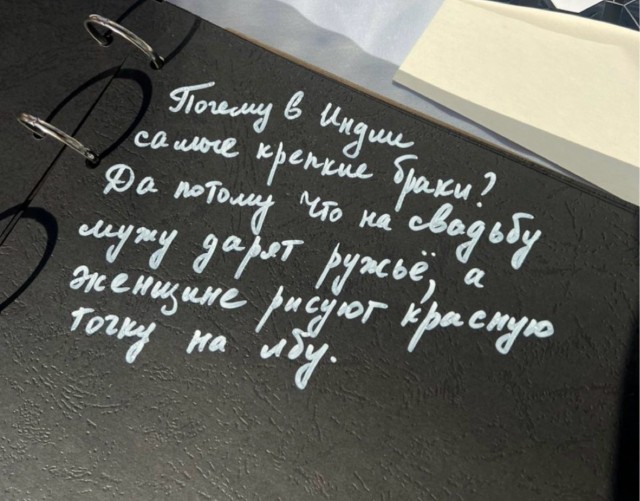 Почему в Индии
самые крепкие браки?
Да потому что на свадьбу
мужу дарят ружьё, а
женщине рисуют красную
точку на лбу.